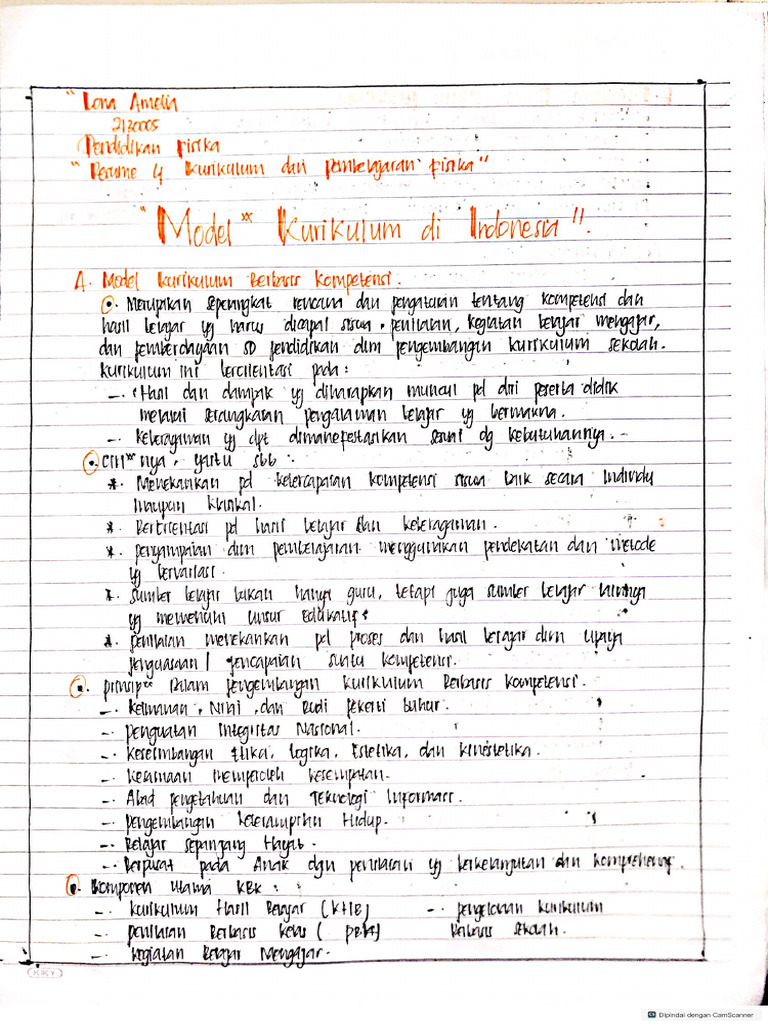 " Lona Amelia
2130005
Pendidikan Fisika
" Resume 4 Kurikulum dan Pembelajaran Fisika "
" Model" Kurikulum di Indonesia ".
A. Model Kurikulum Berbasis Kompetensi.
Merupakan seperangkat rencana dan pengaturan tentang kompetensi dan
hasil belajar yg harus dicapai siswa, penilaian, kegiatan belajar mengajar,
dan pemberdayaan SD pendidikan dlm pengembangan kurikulum sekolah.
Kurikulum ini berorientasi pada :
-. Hasil dan dampak yg diharapkan muncul pd diri peserta didik
melalui serangkaian pengalaman belajar yg bermakna.
-. Keberagaman yg dpt dimanefestasikan sesuai dg kebutuhannya. -
• Ciri" nya, yaitu sbb :
*. Menekankan pd ketercapaian kompetensi siswa baik secara Individu
maupun klasikal.
*. Berorientasi pd hasil belajar dan keberagaman.
*. penyampaian dlm pembelajaran menggunakan pendekatan dan metode
yg bervariasi.
*. Sumber belajar bukan hanya guru, tetapi juga sumber belajar lainnya
yg memenuhi unsur edukatif.
*. penilaian menekankan pd proses dan hasil belajar dlm upaya
penguasaan / pencapaian suatu kompetensi.
•. prinsip" Dalam pengembangan Kurikulum Berbasis Kompetensi.
-. Keimanan, Nilai, dan Budi pekerti luhur.
-. penguatan Integritas Nasional.
-. Keseimbangan Etika, Logika, Estetika, dan kinestetika.
-. Kesamaan memperoleh kesempatan.
-. Abad pengetahuan dan Teknologi Informasi.
-. pengembangan keterampilan Hidup.
-. Belajar sepanjang Hayat.
-. Berpusat pada Anak dgn penilaian yg berkelanjutan dan komprehensif.
•. Komponen Utama KBK :
-. Kurikulum Hasil Belajar (KHB) -. pengelolaan kurikulum
-. penilaian Berbasis kelas ( PBK) Berbasis sekolah.
-. kegiatan Belajar Mengajar.
KIKY
Dipindai dengan CamScanner